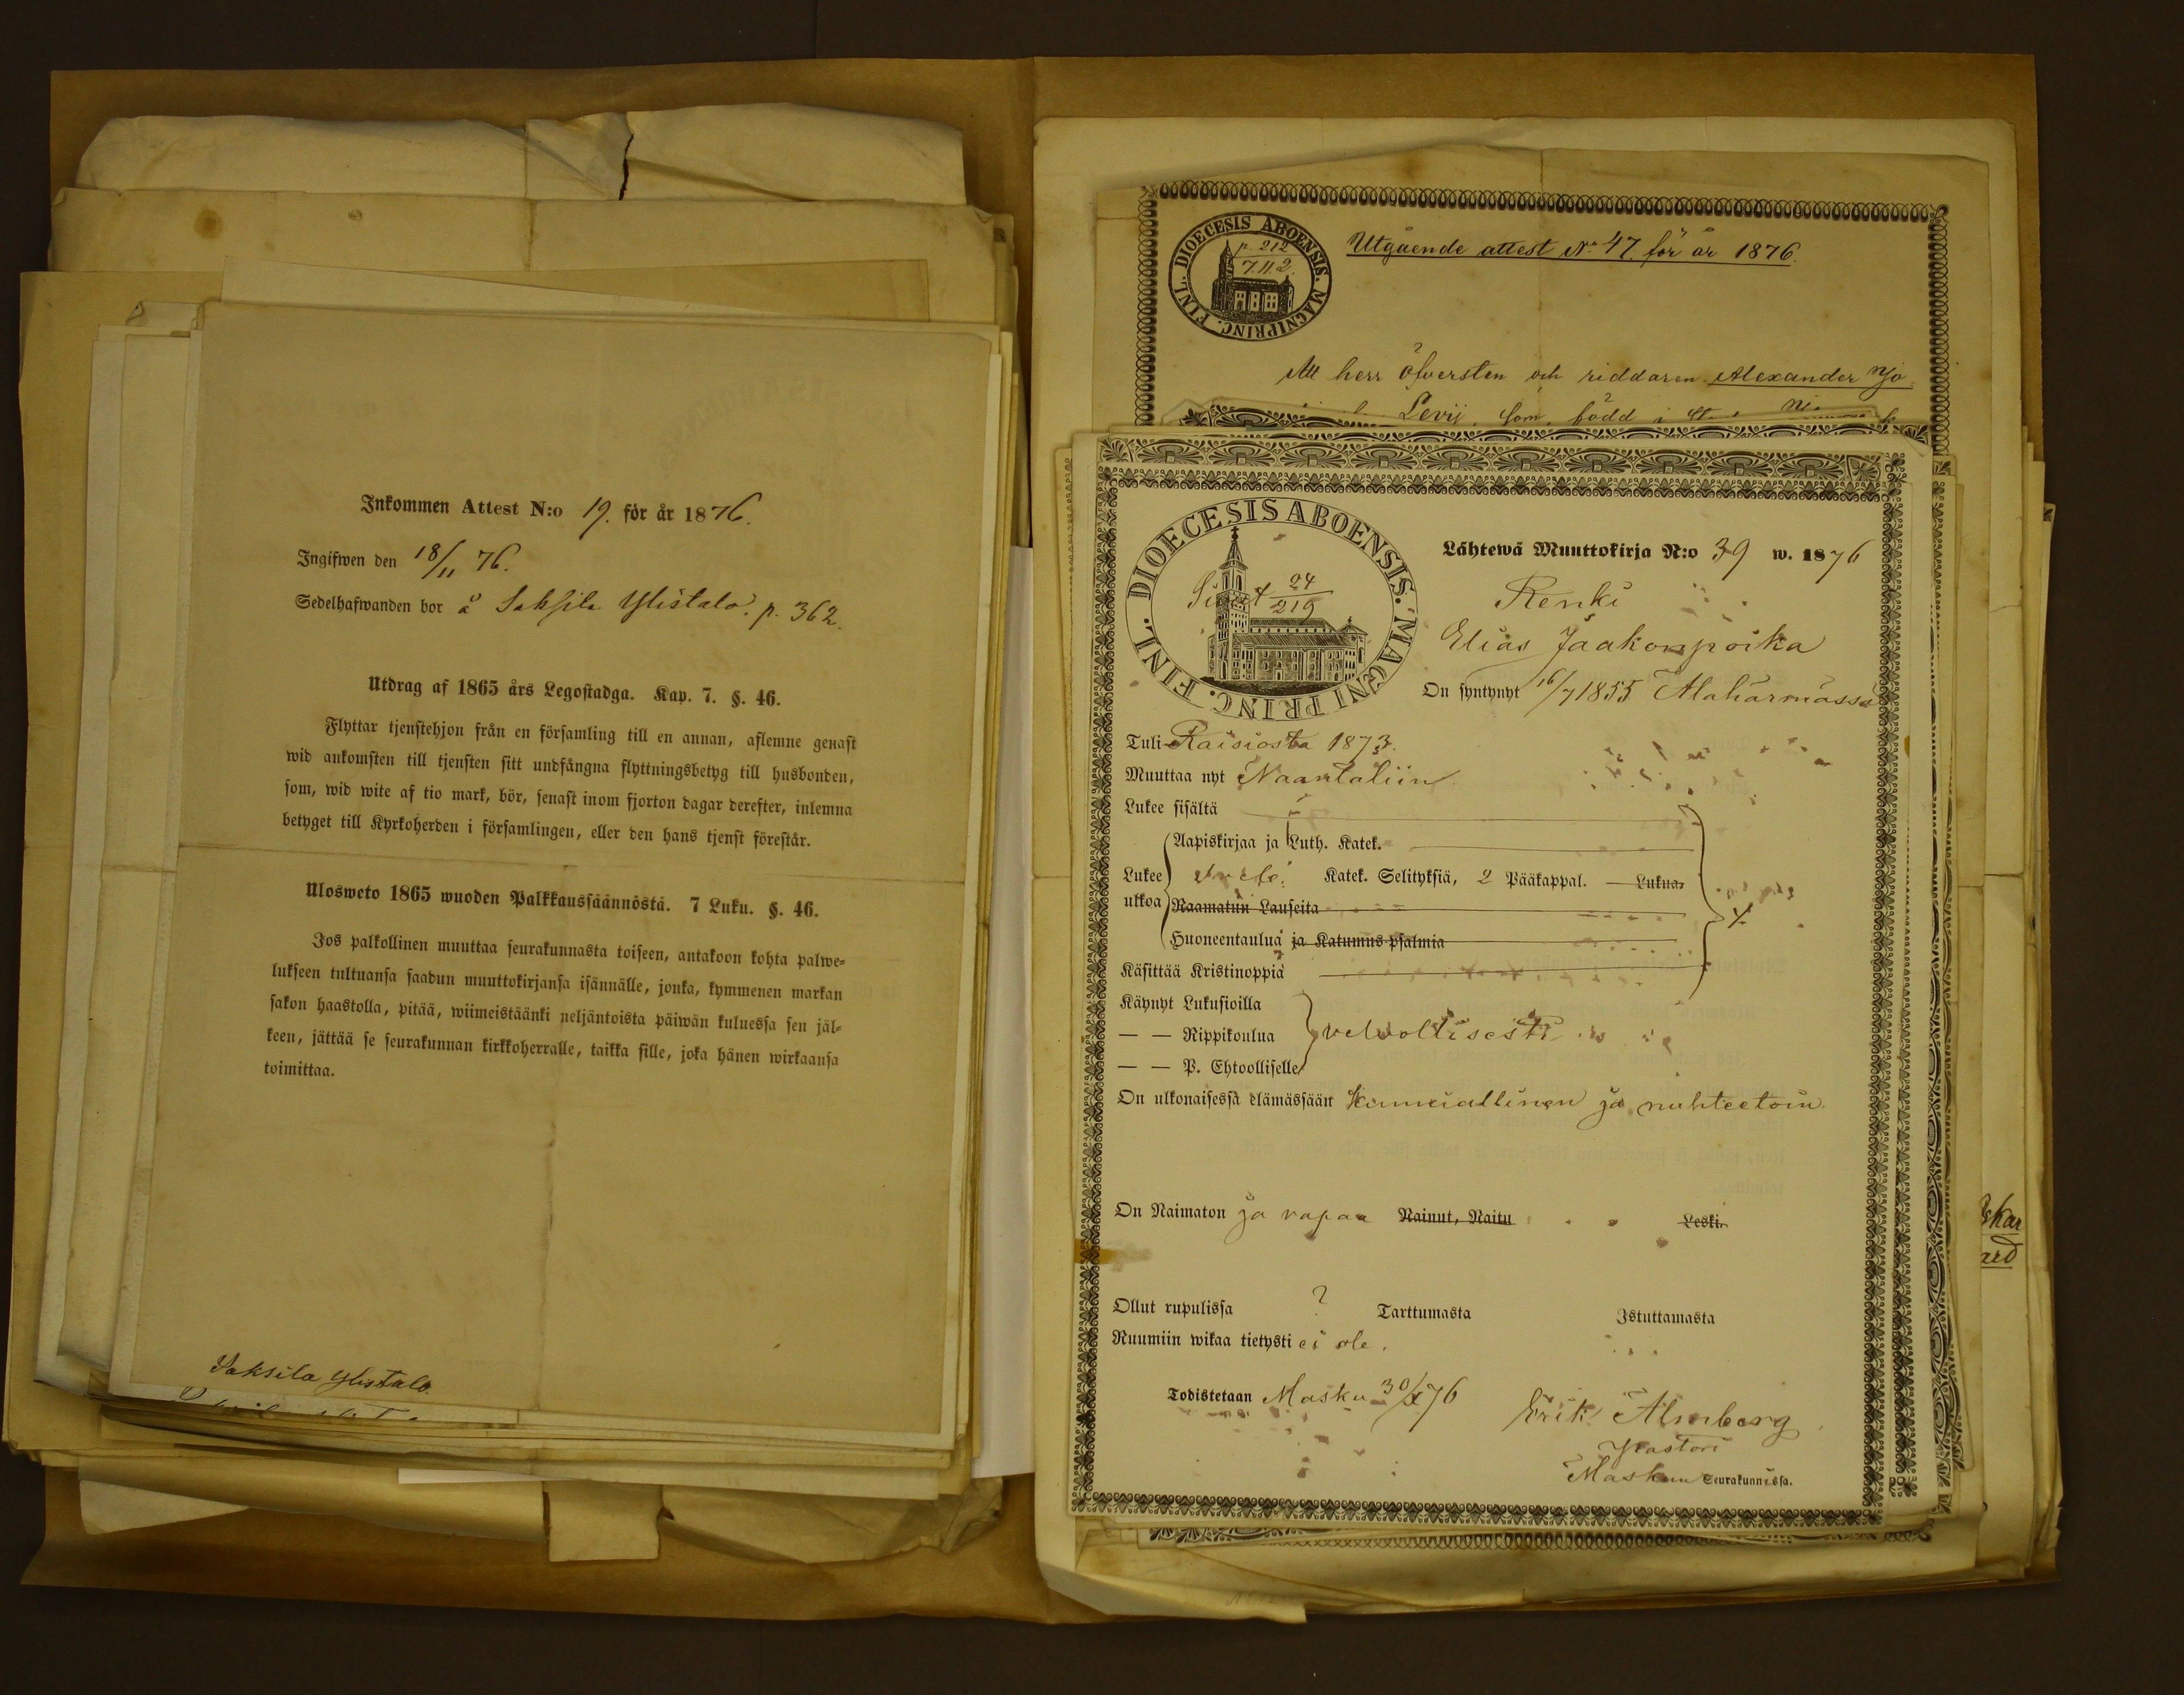 Inkommen Attest N:o 19. för år 1876.
Ingifwen den 18/11 76.
Sedelhafwanden bor å Saksila Ylistalo. p. 362.
Utdrag af 1865 års Legostadga. Kap. 7. §. 46.
Flyttar tjenstehjon från en församling till en annan, aflemne genast
wid ankomsten till tjensten sitt undfångna flyttningsbetyg till husbonden,
som, wid wite af tio mark, bör, senast inom fjorton dagar derefter, inlemna
betyget till Kyrkoherden i församlingen, eller den hans tjenst förestår.
Ulosweto 1865 wuoden Palkkaussäännöstä. 7 Luku. §. 46.
Jos palkollinen muuttaa seurakunnasta toiseen, antakoon kohta palwe-
lukseen tultuansa saadun muuttokirjansa isännälle, jonka, kymmenen markan
sakon haastolla, pitää, wiimeistäänki neljäntoista päiwän kuluessa sen jäl-
keen, jättää se seurakunnan kirkkoherralle, taikka sille, joka hänen wirkaansa
toimittaa.
Saksila Ylistalo.
FINL. DIOECESIS ABOENSIS. MAGNIPRINC.
p. 212
7.11.2.
Utgående attest No 47. för år 1876.
Att herr öfversten och riddaren Alexander
Levij, som, född i
FINL. DIOECESIS ABOENSIS. MAGNI PRINC.
24
219
Lähtewä Muuttokirja N:o 39 w. 1876
Renki
Elias Jaakonpoika
On syntynyt 16/7 1855 Alahärmässä
Tuli Raisiosta 1873.
Muuttaa nyt Naantaliin
Lukee sisältä
Aapiskirjaa ja Luth. Katek.
Lukee
ulkoa
Katek. Selityksiä, 2 Pääkappal. Lukua.
Raamatun Lauseita
Huoneentaulua ja Katumus-psalmia
Käsittää Kristinoppia
Käynyt Lukusioilla
— — Rippikoulua velvollisesti
— — P. Ehtoolliselle
On ulkonaisessa elämässään kunniallinen ja nuhteetoin.
On Naimaton ja vapaa Nainut, Naitu Leski.
Ollut rupulissa ? Tarttumasta Istuttamasta
Ruumiin wikaa tietysti ei ole.
Todistetaan Masku 30/X 76
Erik Almberg
Pastori
Maskun Seurakunnassa.